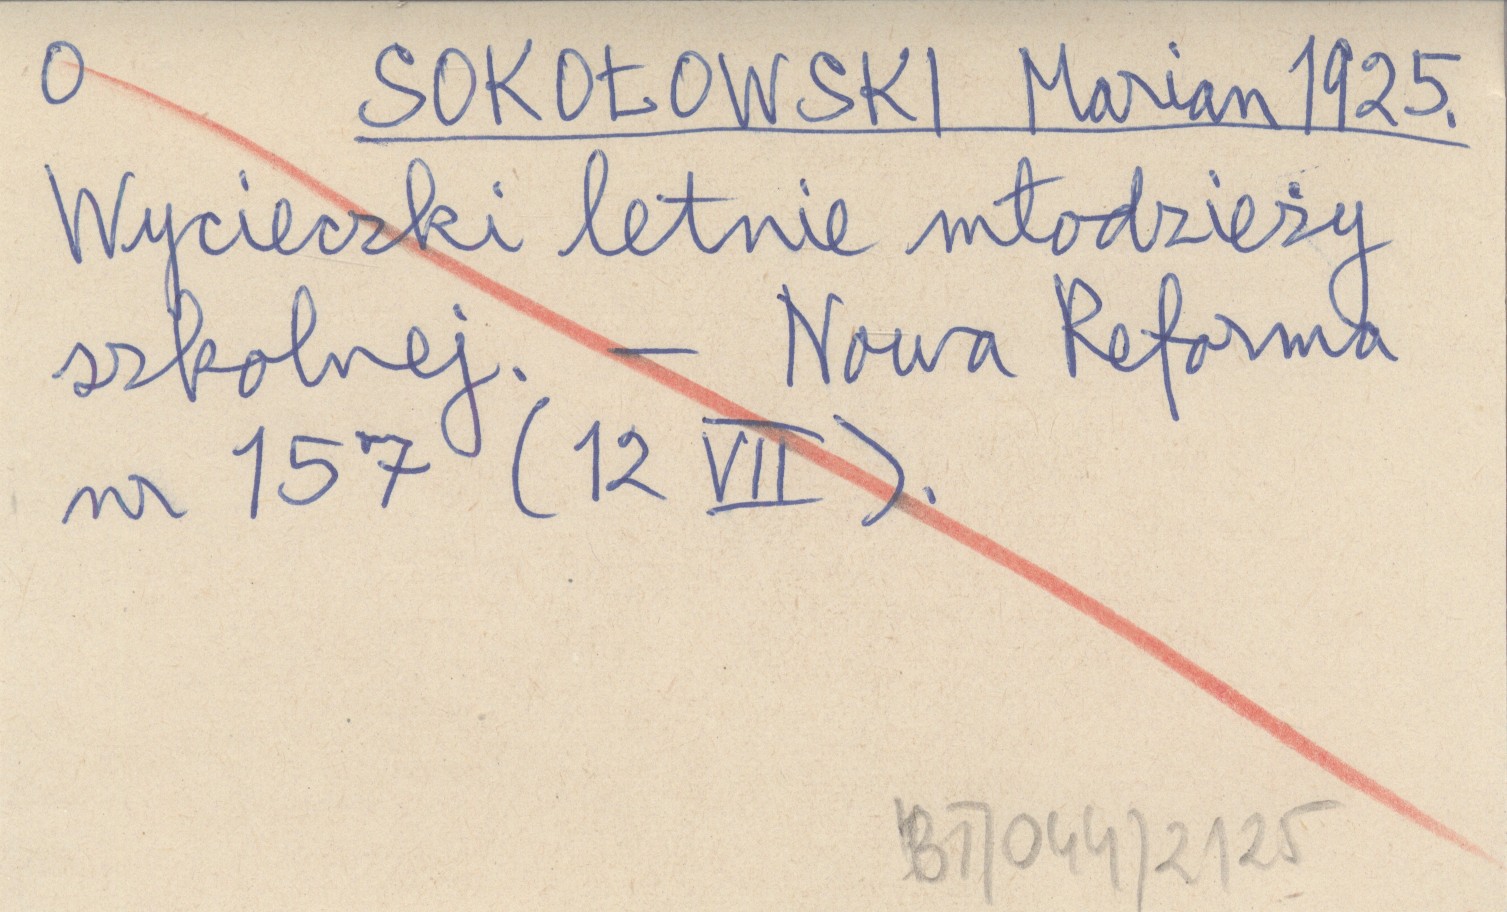 O SOKOŁOWSKI Marian 1925.
Wycieczki letnie młodzieży
szkolnej. — Nowa Reforma
nr 157 (12 VII).
BT/044/2125